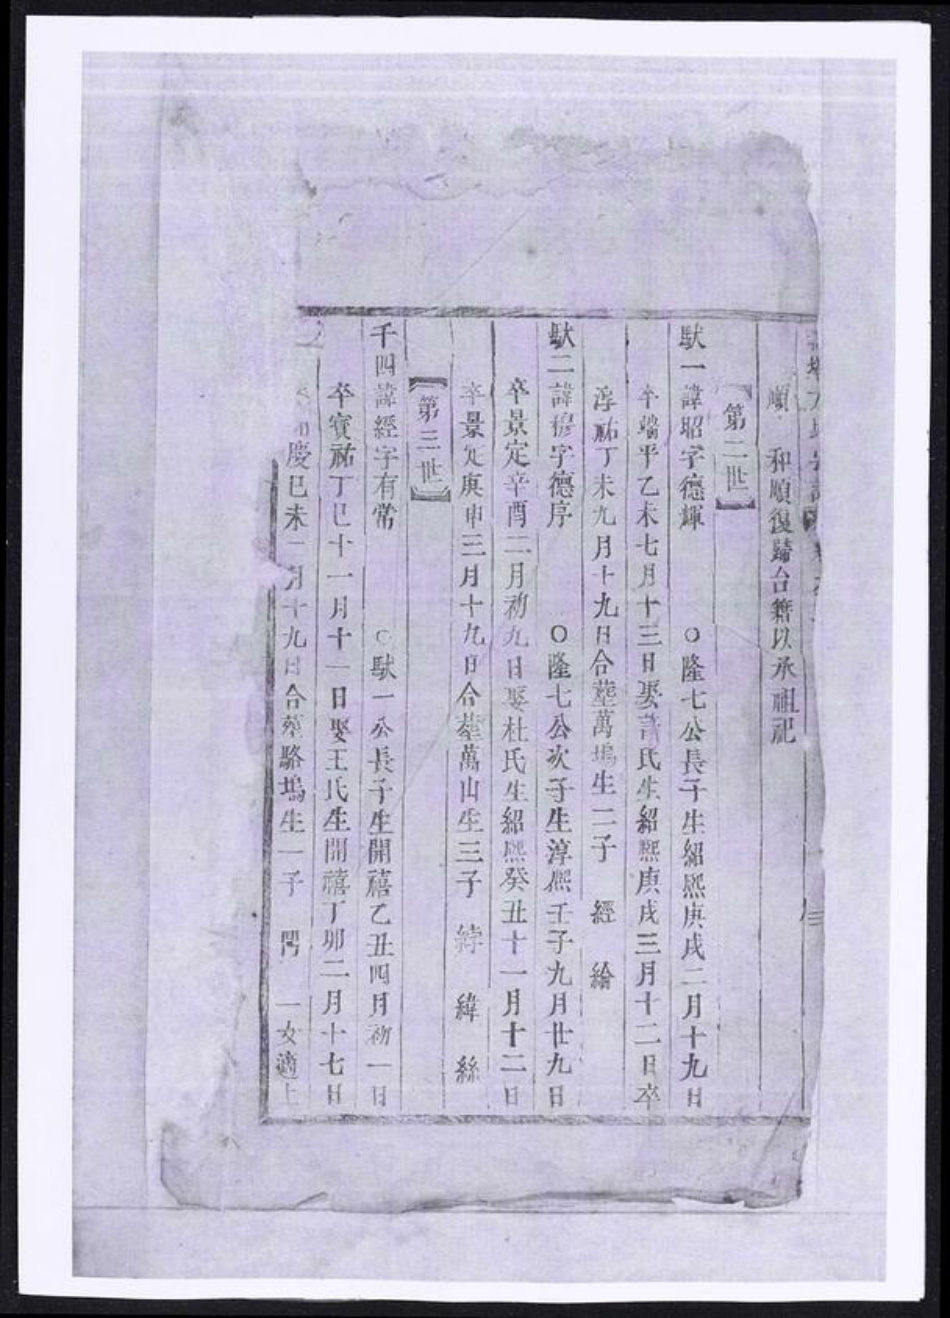 順 和順復歸台籍以承祖祀
【第二世】
馱一諱昭字德輝 ○隆七公長子生紹熙庚戌二月十九日
卒端平乙未七月十三日娶許氏生紹熙庚戌三月十二日卒
淳祐丁未九月十九日合塟萬塢生二子 經 綸
馱二諱穆字德序 ○隆七公次子生淳熙壬子九月廿九日
卒景定辛酉二月初九日娶杜氏生紹熙癸丑十一月十二日
卒景定庚申三月十九日合塟萬山生三子 緈 緯 絲
【第三世】
千四諱經字有常 ○馱一公長子生開禧乙丑四月初一日
卒寶祐丁巳十一月十一日娶王氏生開禧丁卯二月十七日
慶巳未 月十九日合塟駱塢生一子 一女適上